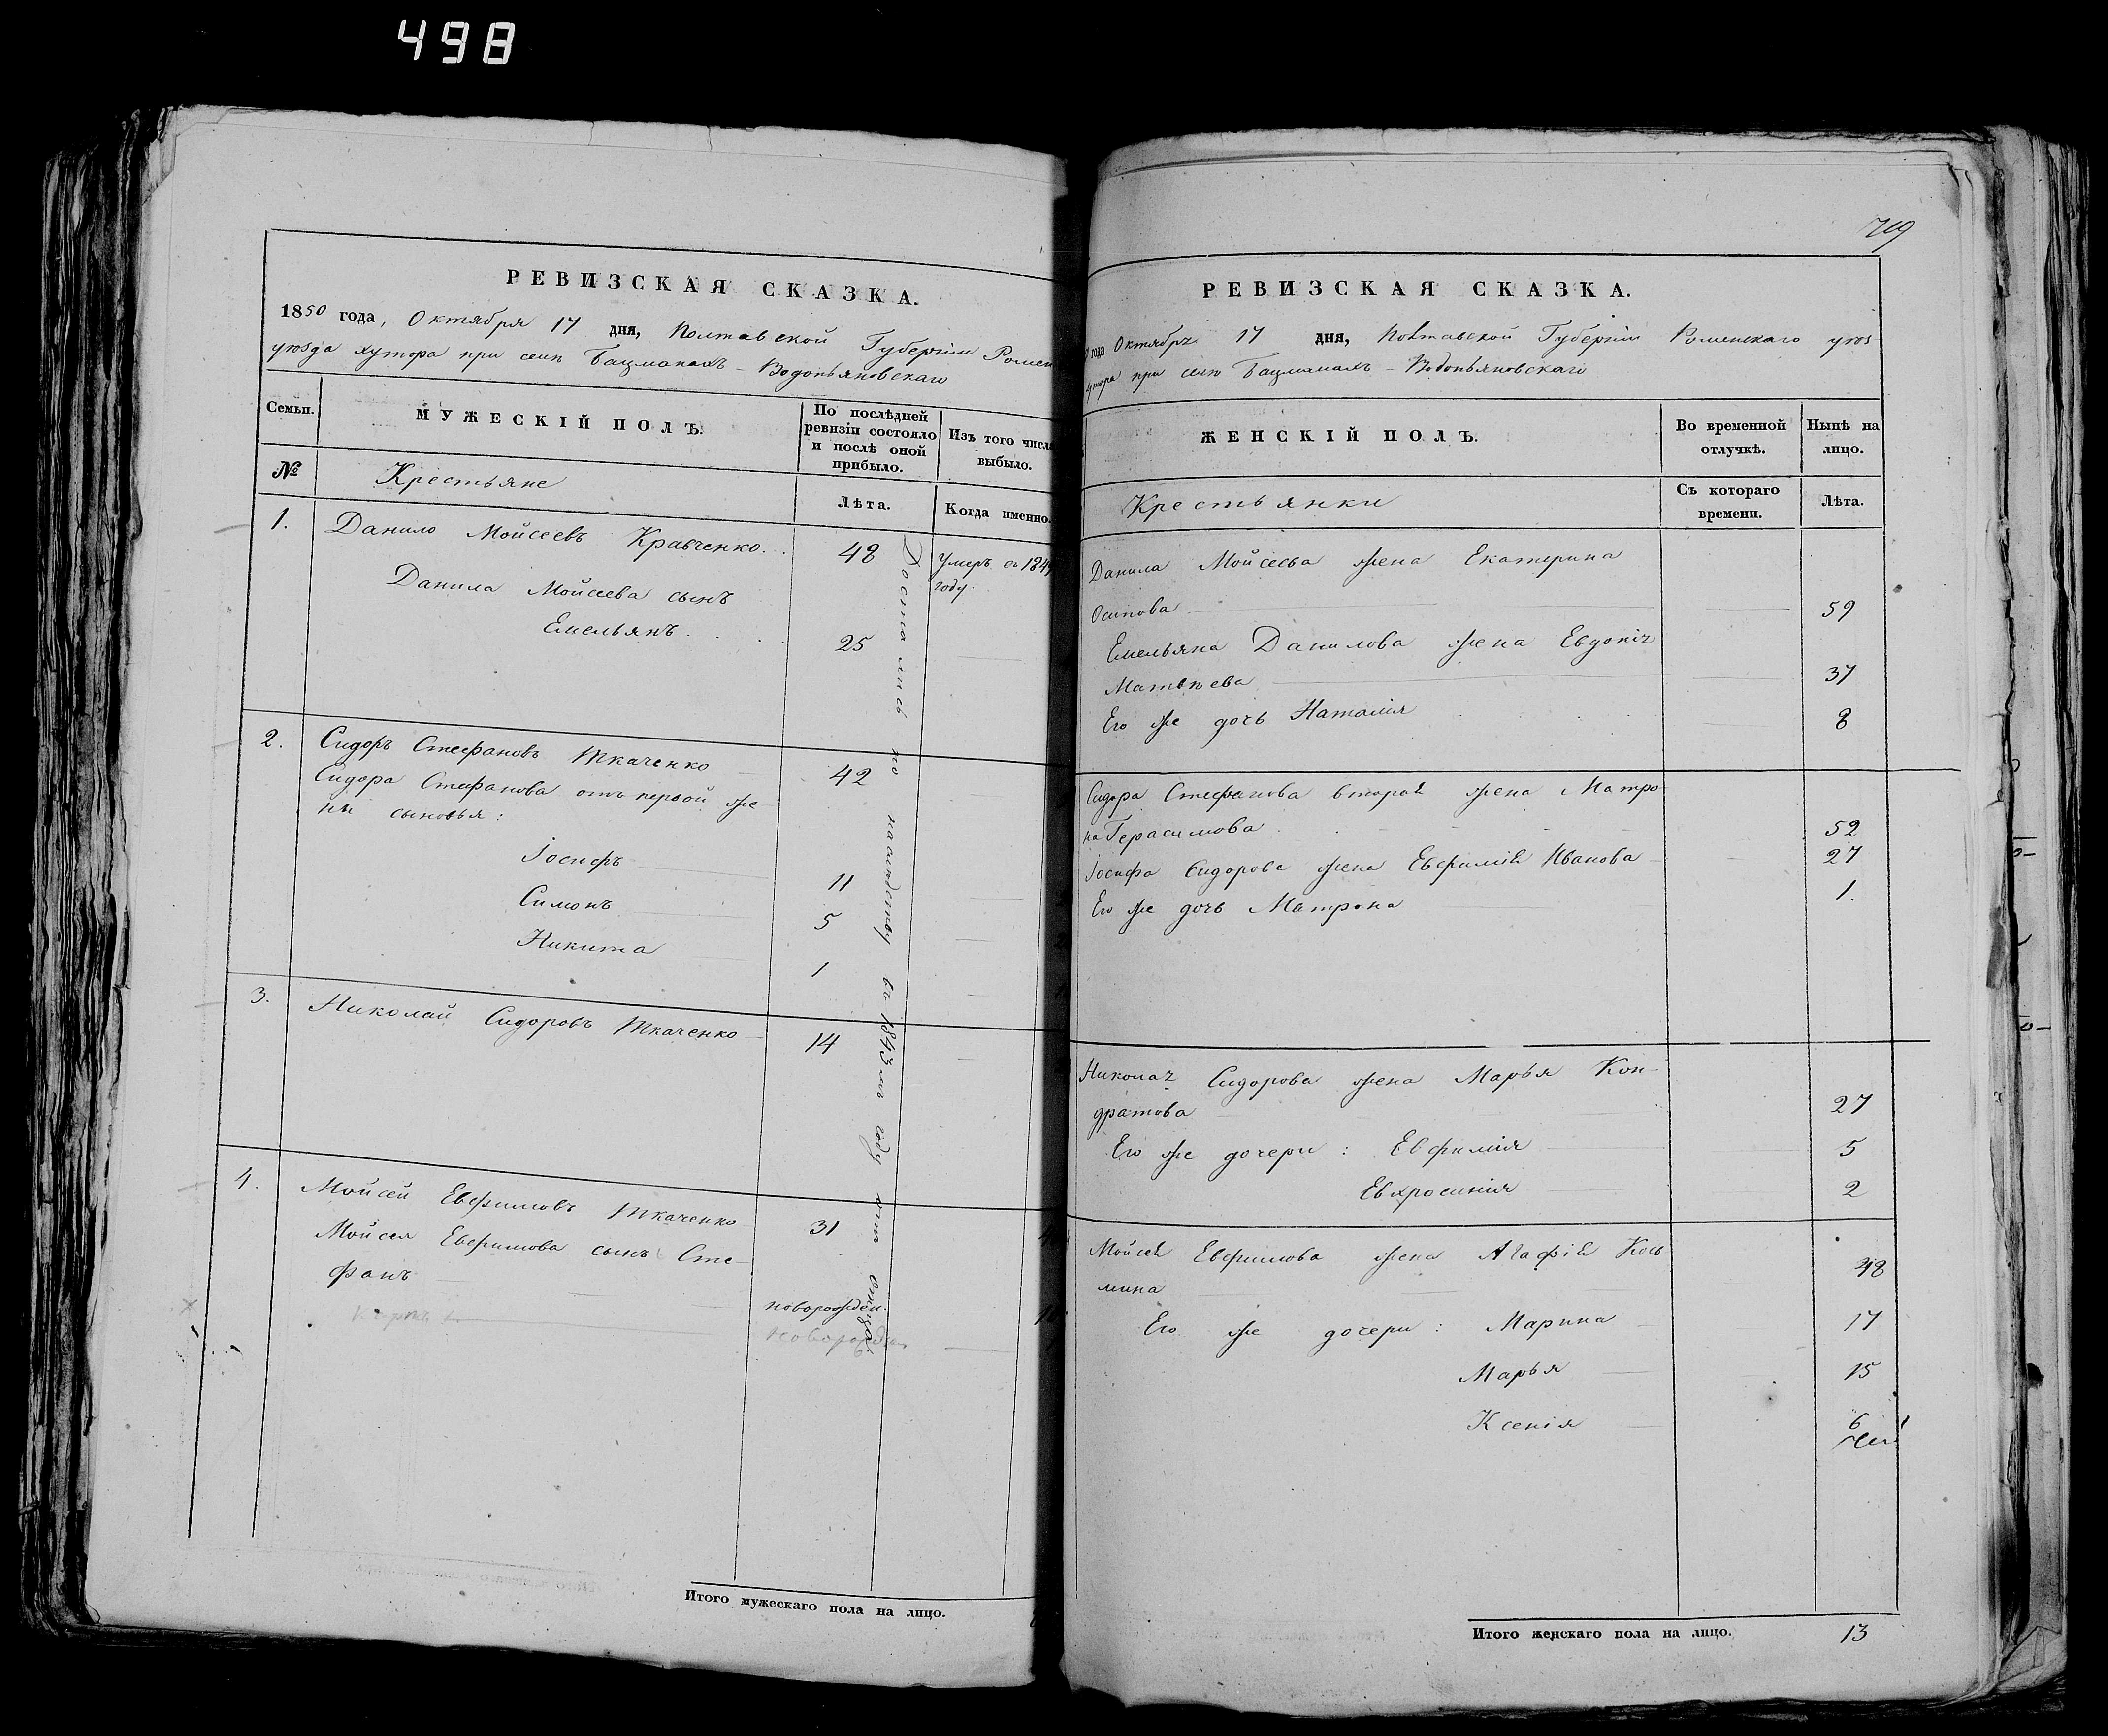 498
РЕВИЗСКАЯ СКАЗКА.
1850 года, Октября 17 дня, Полтавской Губерніи Ромен
уѣзда хутора при селѣ Бацманахъ - Водопьяновскаго
Семьи.
МУЖЕСКІЙ ПОЛЪ.
По послѣдней
ревизіи состояло
и послѣ оной
прибыло.
Изъ того числа
выбыло.
№
Крестьяне
Лѣта.
Когда именно.
1. Данило Мойсеевъ Кравченко 48 Умеръ въ 184
году.
Данила Мойсеева сынъ
Емельянъ 25
2. Сидоръ Стефановъ Ткаченко 42
Сидора Стефанова отъ первой же
ны сыновья:
Іосифъ 11
Симонъ 5
Никита 1
3. Николай Сидоровъ Ткаченко 14
4. Мойсей Евфимовъ Ткаченко 31
Мойсея Евфимова сынъ Сте-
фанъ новорожден.
новорожден
Достались по наслѣдству въ 1843мъ году отъ отца
Итого мужескаго пола на лицо.
719
РЕВИЗСКАЯ СКАЗКА.
года Октября 17 дня, Полтавской Губерніи Роменскаго уѣз-
хутора при селѣ Бацманахъ - Водопьяновскаго
ЖЕНСКІЙ ПОЛЪ.
Во временной
отлучкѣ.
Нынѣ на
лицо.
Крестьянки
Съ котораго
времени.
Лѣта.
Данила Мойсеева жена Екатерина
Осипова 59
Емельяна Данилова жена Евдокія
Матвѣева 37
Его же дочь Наталія 8
Сидора Стефанова вторая жена Матро-
на Герасимова 52
Іосифа Сидорова жена Евфимія Иванова 27
Его же дочь Матрона 1.
Николая Сидорова жена Марья Кон-
дратова 27
Его же дочери: Евфимія 5
Евхросинія 2
Мойсея Евфимова жена Агафія Кось
мина 48
Его же дочери: Марина 17
Марья 15
Ксенія 6
Итого женскаго пола на лицо. 13